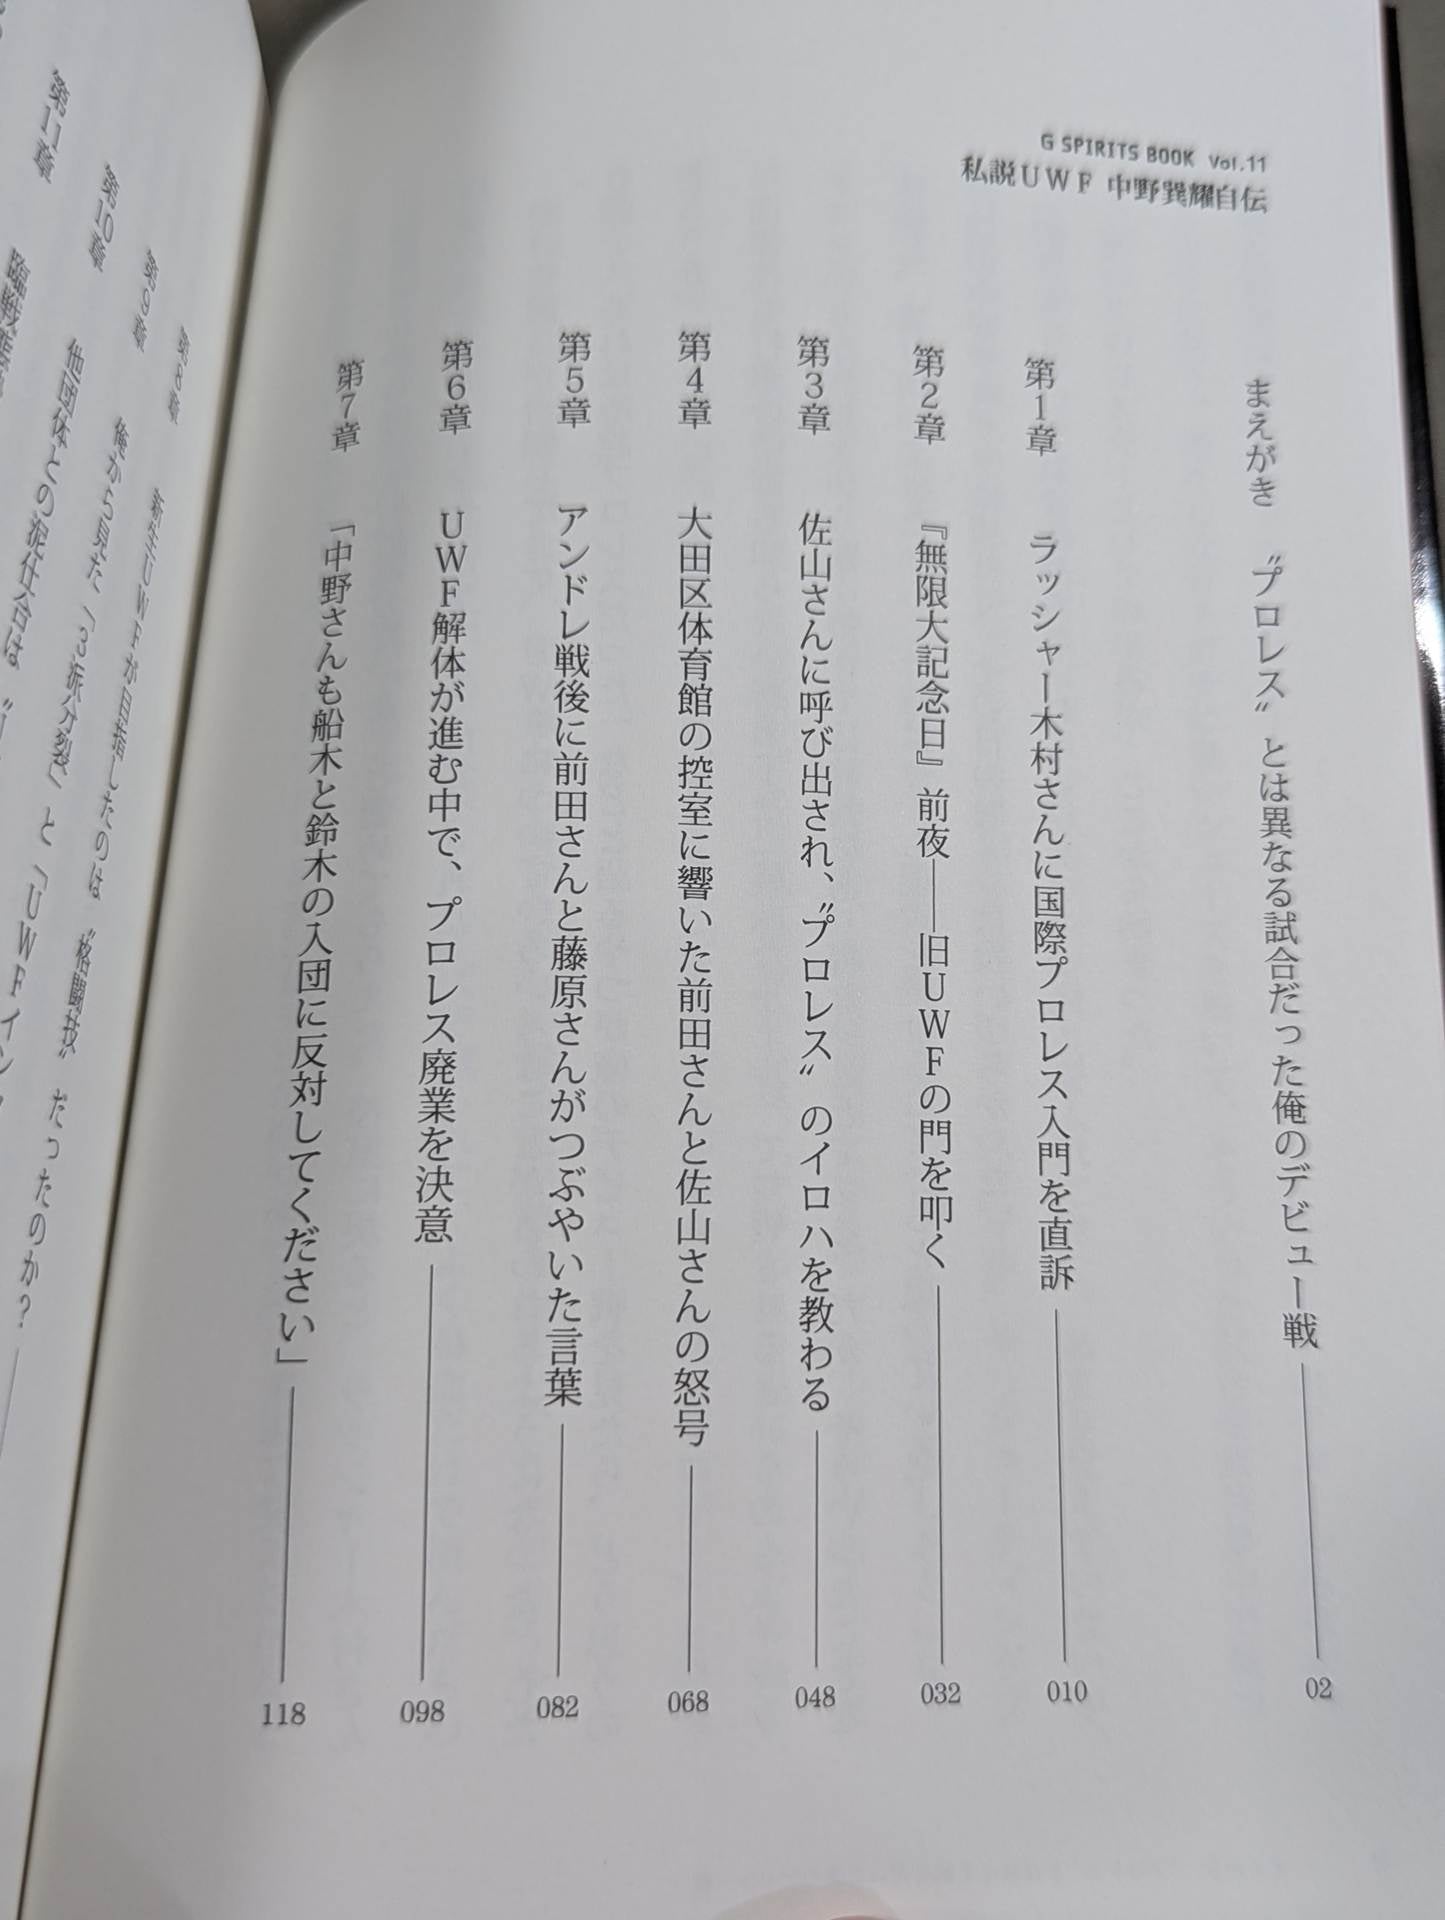 G SPIRITS BOOK Vol.11
私説UWF 中野巽耀自伝
まえがき 〝プロレス〟とは異なる試合だった俺のデビュー戦 02
第1章 ラッシャー木村さんに国際プロレス入門を直訴 010
第2章 『無限大記念日』前夜――旧UWFの門を叩く 032
第3章 佐山さんに呼び出され、〝プロレス〟のイロハを教わる 048
第4章 大田区体育館の控室に響いた前田さんと佐山さんの怒号 068
第5章 アンドレ戦後に前田さんと藤原さんがつぶやいた言葉 082
第6章 UWF解体が進む中で、プロレス廃業を決意 098
第7章 「中野さんも船木と鈴木の入団に反対してください」 118
第8章 新生UWFが目指したのは〝格闘技〟だったのか?
第9章 俺から見た「3派分裂」と「UWFイン
第10章 他団体との泥仕合は
第11章 臨戦